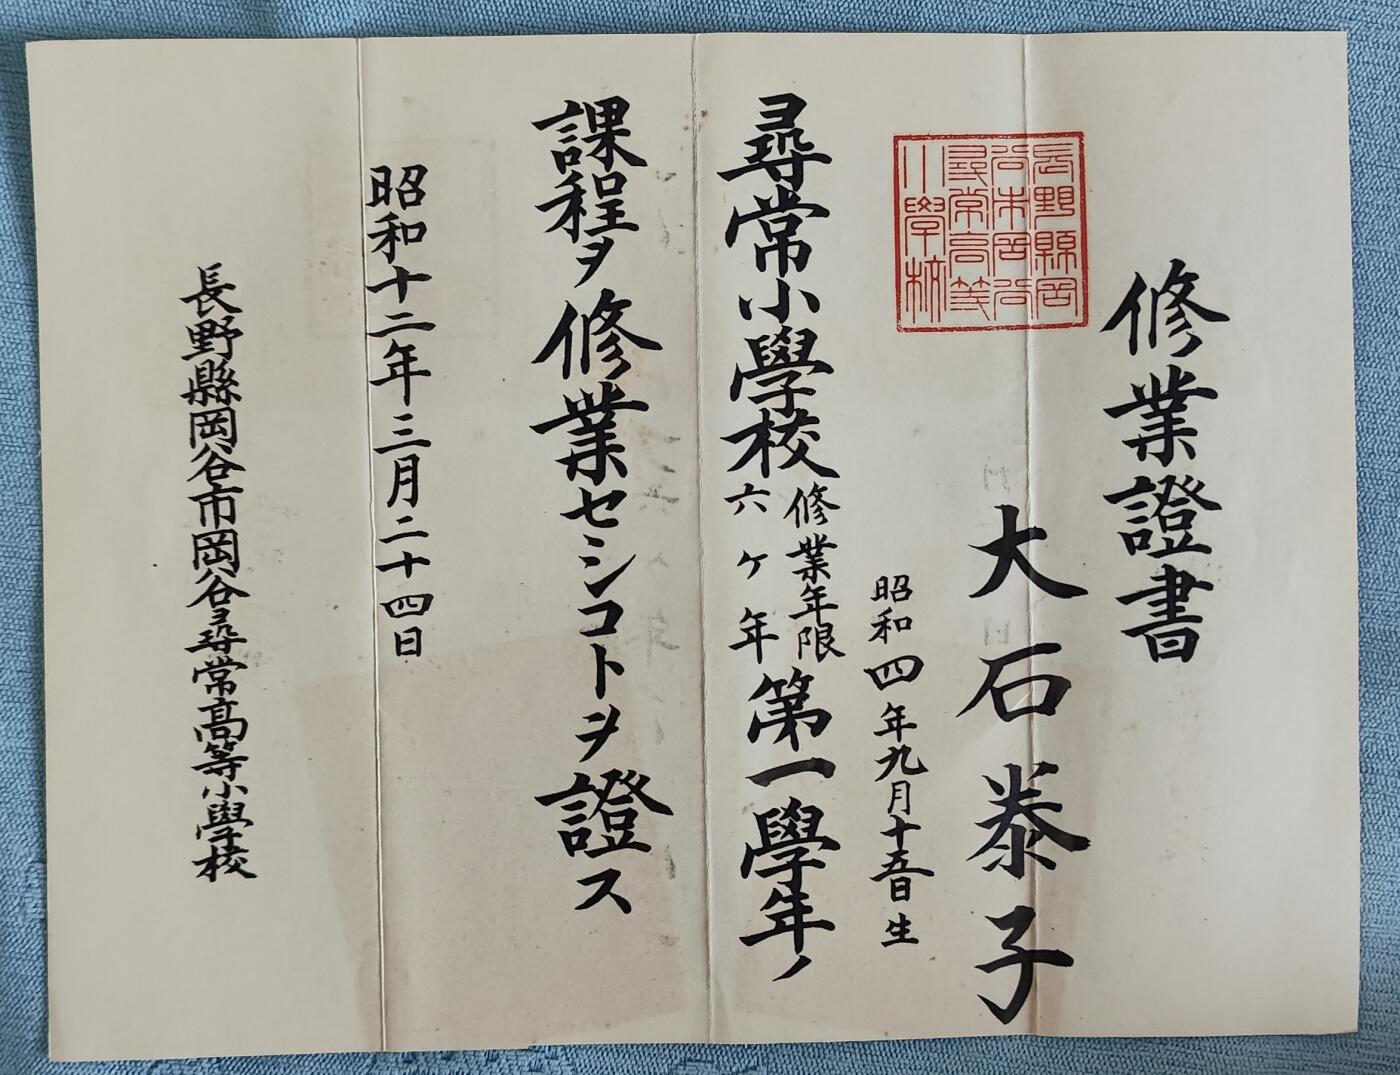 修業證書
長野縣岡
谷市岡谷
尋常高等
小學校
大石泰子
昭和四年九月十五日生
尋常小學校修業年限六ヶ年第一學年ノ
課程ヲ修業セシコトヲ證ス
昭和十二年三月二十四日
長野縣岡谷市岡谷尋常高等小學校